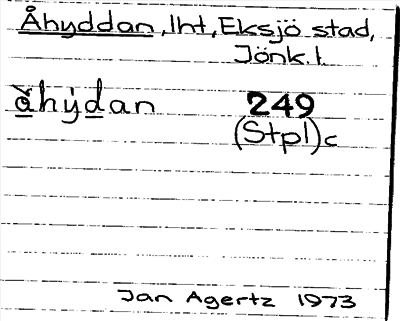 Åhyddan, lht, Eksjö stad,
Jönk. l.
åhy̍dan 249
(Stpl)c
Jan Agertz 1973